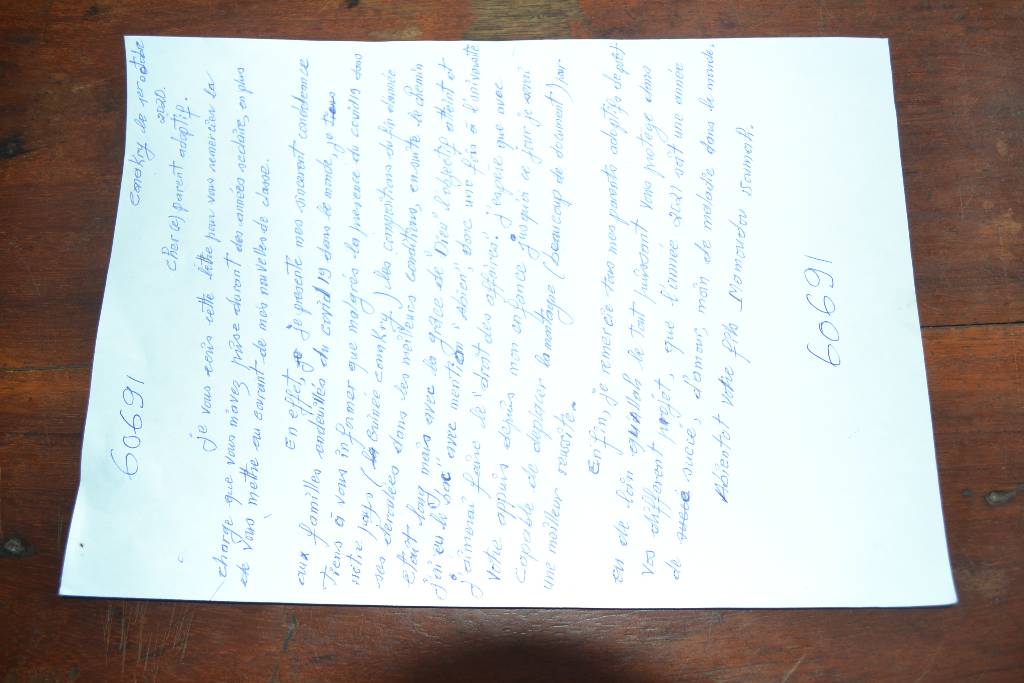 60691
Conakry le 1er octobre
2020.
Cher(e) parent adoptif.
je vous ecris cette lettre pour vous remercier la
charge que vous m'avez prise durant des années seclaire, en plus
de vous mettre au courant de mes nouvelles de classe.
En effet, je présente mes sincerent condoleance
aux familles endeuillés du covid 19 dans le monde, je
Tiens à vous informer que malgrés la presence du covid19 dans
nôtre pays (Guinée conakry) les compositions du fin d'année
ses deroulées dans les meilleurs conditions, ensuite le chemin
étant long mais avec la grâce de Dieu l'objectif atteint et
j'ai eu le bac" avec mention Abien", donc une fois à l'université
j'aimerai faire le "droit des affaires", j'espère que avec
Votre appuis depuis mon enfance jusqu'à ce jour je serai
Capable de deplacer la montagne (beaucoup de document) pour
une meilleur reussite.
Enfin, je remercie tous mes parents adoptifs de prêt
ou de loin qu'Allah le tout puissant vous protege dans
Vos different projet, que l'année 2021 soit une année
de succé, d'amour, moin de maladie dans le monde.
Abientot votre fils Mamadou
60691